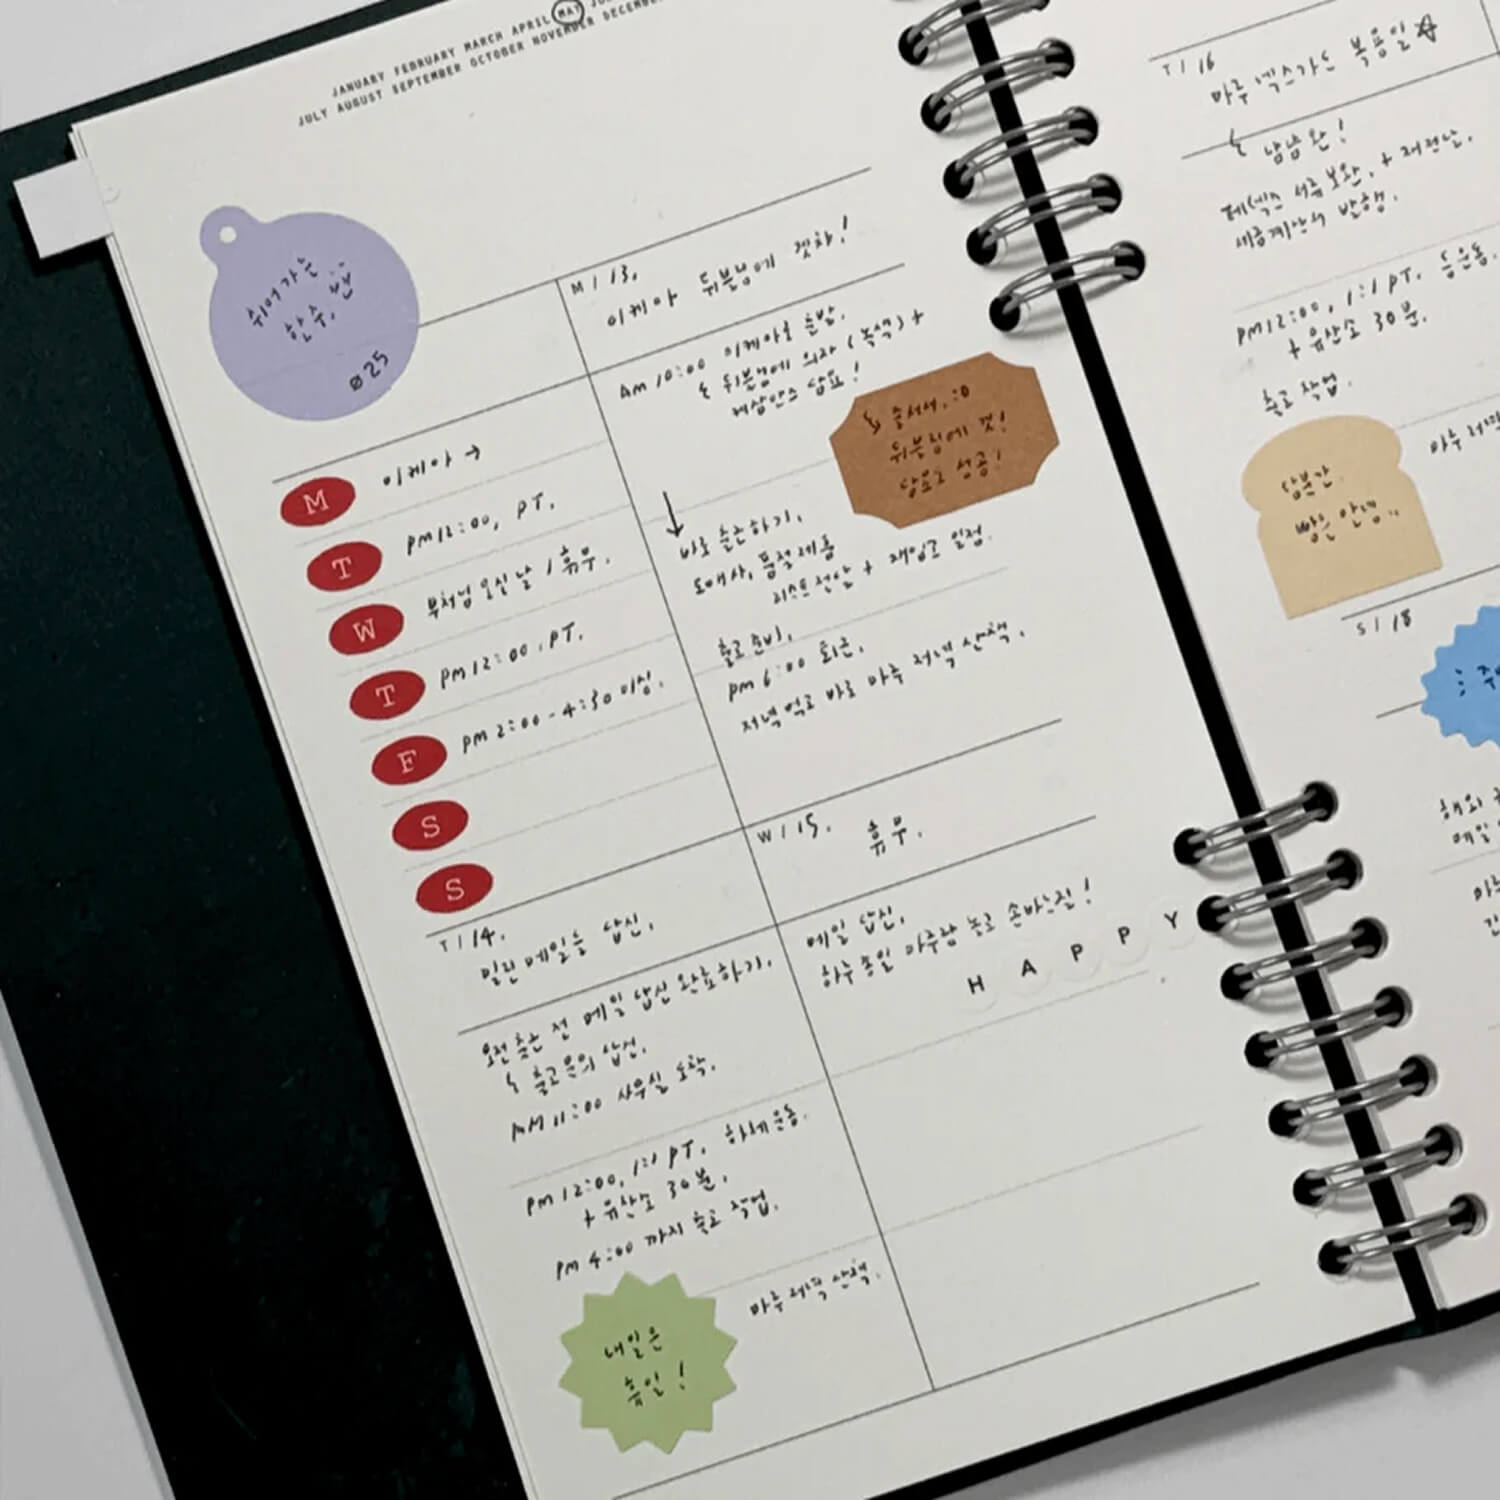 JANUARY FEBRUARY MARCH APRIL MAY
JULY AUGUST SEPTEMBER OCTOBER NOVEMBER DECEMBER
쉬어가는
한 주,
ø25
M 이케아 →
T pm 12:00, PT.
W 부처님 오신 날 / 휴무.
T pm 12:00, PT.
F pm 2:00 - 4:30 미싱.
S
S
M / 13.
이케아 뒤블링에 겟챠!
AM 10:00 이케아로 출발.
↳ 뒤블링에 의자 (녹색) +
담요!
↳ 줄서서. :0
뒤블링에 겟!
담요도 성공!
↓ 바로 출근하기.
도매사, 품절제품
리스트 전달 + 재입고 일정.
출고준비.
pm 6:00 퇴근.
저녁 먹고 바로 마루 저녁 산책.
T / 14.
밀린 메일들 답신.
오전 출근 전 메일 답신 완료하기.
↳ 출고문의 답신.
AM 11:00 사무실 도착.
pm 12:00, 1:1 PT. 하체운동.
+ 유산소 30분.
pm 4:00 까지 출고 작업.
마루 저녁 산책.
내일은
휴일!
W / 15.
휴무.
메일 답신.
하루종일 마루랑 놀고 손바느질!
HAPPY
T / 16
마루 넥스가드 복용일 ☆
↳ 냠냠 완!
서류 보완. +
세금계산서 발행.
pm 12:00, 1:1 PT. 등운동.
+ 유산소 30분.
출고 작업.
마루 저녁
당분간
빵은 안녕..
S / 18
해외
메일
마루